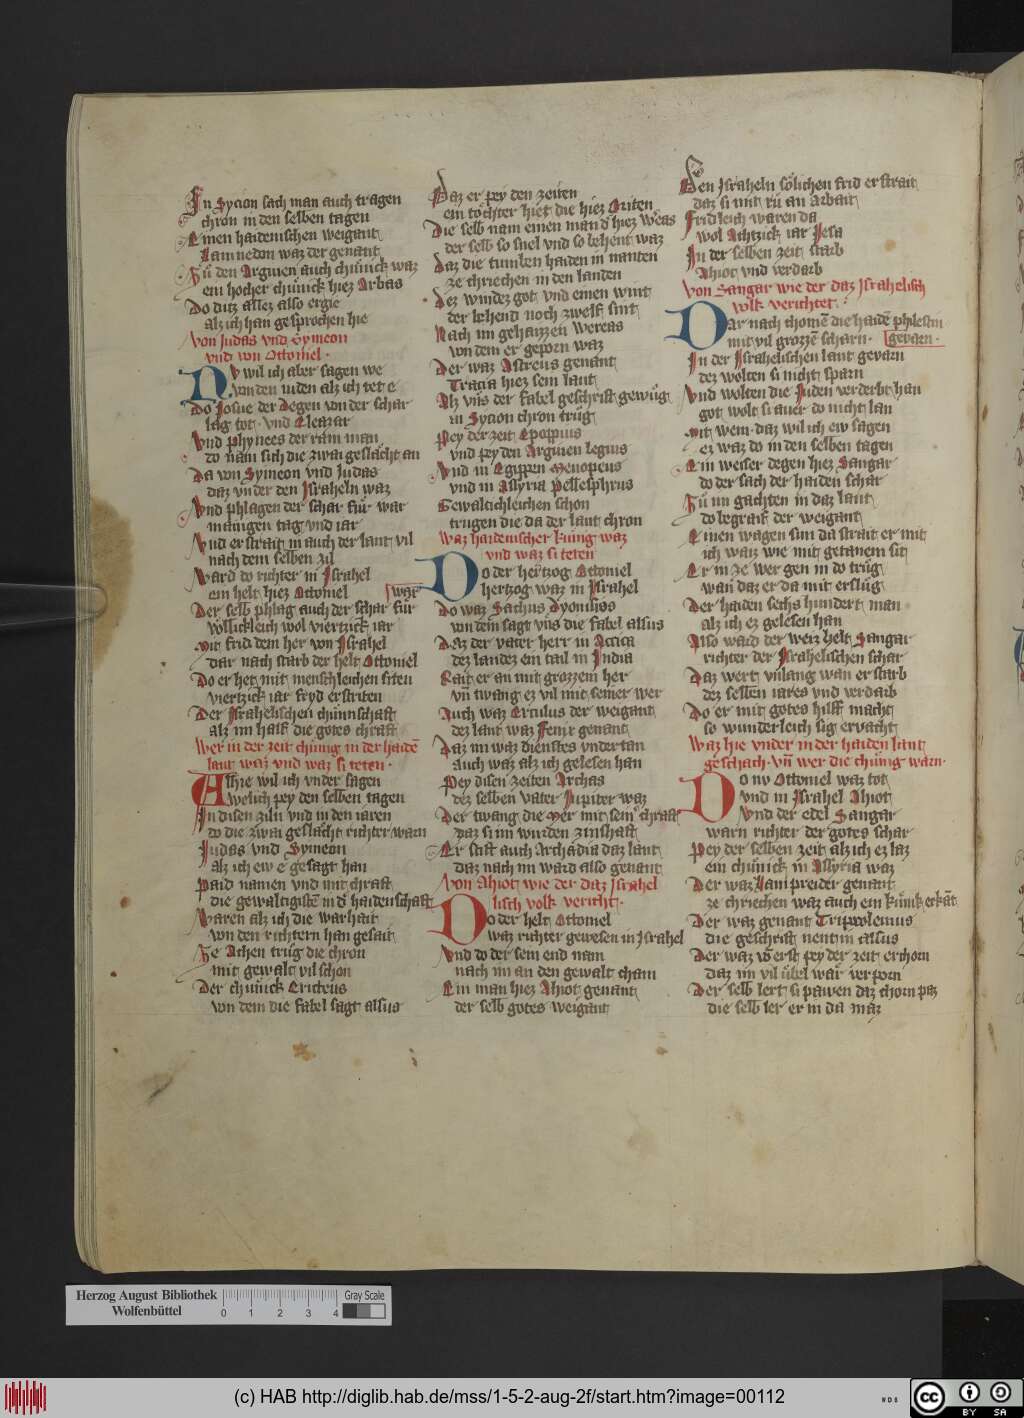 In Sycion sach man auch tragen
chron in den selben tagen
Einen haidenischen weigant
Lamnedon waz der genant
Zu den Arguien auch chünick waz
ein hocher chünick hiez Arbas
Do ditz allez also ergie
alz ich han gesprochen hie
Von Judas vnd Symeon
vnd von Ottoniel
Nv wil ich aber sagen we
von den iuden alz ich tet e
Do Josue der Degen von der schar
lag tot vnd Eleazar
Vnd phynees der ram man
do nam sich die zwai geslächt an
Da von Symeon vnd Judas
daz vnder den Israheln waz
Vnd phlagen der schar für war
manigen tag vnd iar
Vnd erstrait in auch der lant vil
nach dem selben zil
Ward do richter in Israhel
ein helt hiez Ottoniel
Der selb phlag auch der schar für war
völlickleich wol viertzick iar
Mit frid dem her von Israhel
Dar nach starb der helt Ottoniel
Do er het mit menschleichen siten
viertzick iar fryd erstriten
Der Israhelischen chünnschaft
alz im half die gotes chraft
Wer in der zeit chünig in der haidē
lant waz vnd waz si teten
Alhie wil ich vnder sagen
welich pey den selben tagen
In disen ziln vnd in den iaren
do die zwai geslächt richter warn
Judas vnd Symeon
alz ich ew e gesagt han
Paid namen vnd mit chraft
die gewaltigistē in d haidenschaft
Waren alz ich die warhait
von den richtern han gesait
Ze Achen trug die chron
mit gewalt vil schon
Der chünick Ericteus
von dem die fabel sagt alsus
Daz er pey den zeiten
ein töchter hiet die hiez Oriten
Die selb nam einen man d hiez Weas
der selb so snel vnd so behent waz
Daz die tumben haiden in nanten
ze chriechen in den landen
Dez windez got vnd einen wint
der lebend noch zwelf sint
Nach im gehaizzen Wereas
von dem er geporn waz
Der waz Astreus genant
Tracia hiez sein lant
Alz vns der fabel geschrift gewüg
in Sycion chron trüg
Pey der zeit Epoppius
vnd pey den Arguien legius
Vnd in Egippen Menopeus
vnd in Assyria Pellesphrus
Gewaltichleichen schon
trugen die da der lant chron
Waz haidenischer küng waz
vnd waz si teten
Do der hertzog Ottoniel
hertzog waz in Israhel
Do waz Sachus Dyonisios
von dem sagt vns die fabel alsus
Daz der vater herr in Actica
dez landez ein tail in India
Rait er an mit grozzem her
vn twang ez vil mit seiner wer
Auch waz Erculus der weigant
dez lant waz Fenix genant
Daz im waz dienstes vndertan
auch waz alz ich gelesen han
Pey disen zeiten Archas
dez selben vater Jupiter waz
Der twang die Mer mit sein chraft
daz si im wurden zinshaft
Er stift auch Archadia daz lant
daz nach im ward also genant
Von Ahiot wie der daz Israhel
lisch volk vericht
Do der helt Ottoniel
waz richter gewesen in Israhel
Vnd do der sein end nam
nach im an den gewalt cham
Ein man hiez Ahiot genant
der selb gotes weigant
Den Israheln sölichen frid erstrait
daz si mit rü an arbait
Fridleich waren da
wol Achtzick iar Jesa
In der selben zeit starb
Ahiot vnd verdarb
Von Sangar wie der daz Israhelisch
volk verichtet
Dar nach chomē die haidē philistin
mit vil grozzē scharn gevarn
In der Israhelischen lant gevarn
dez wolten si nicht sparn
Vnd wolten die Juden verderbt han
got wolt si auer do nicht lan
Mit wem daz wil ich ew sagen
ez waz do in den selben tagen
Ein weiser degen hiez Sangar
do der sach der haiden schar
Zu im gachten in daz lant
do begraif der weigant
Einen wagen sun da strait er mit
ich waiz wie mit getanem sit
Er in ze wer gen in do trüg
wan daz er da mit erslüg
Der haiden sechs hundert man
alz ich ez gelesen han
Also ward der werz helt Sangar
richter der Israhelischen schar
Daz wert vnlang wan er starb
dez selben iares vnd verdarb
Do er mit gotes hilff macht
so wunderleich sig ervacht
Waz hie vnder in der haiden lant
geschach vn wer die chünig warn
Do nv Ottoniel waz tot
vnd in Israhel Ahiot
Vnd der edel Sangar
warn richter der gotes schar
Pey der selben zeit alz ich ez laz
ein chünick in Assyria waz
Der waz Lampreider genant
ze chriechen waz auch ein künik erkāt
Der waz genant Triptolemus
die geschrift nent in alsus
Der waz võ erst pey der zeit erchorn
daz im vil übel war verporn
Der selb lert si pawen daz chorn paz
die selb ler er in da maz
Herzog August Bibliothek
Wolfenbüttel
Gray Scale
0 1 2 3 4
(c) HAB http://diglib.hab.de/mss/1-5-2-aug-2f/start.htm?image=00112
WDB
cc BY SA